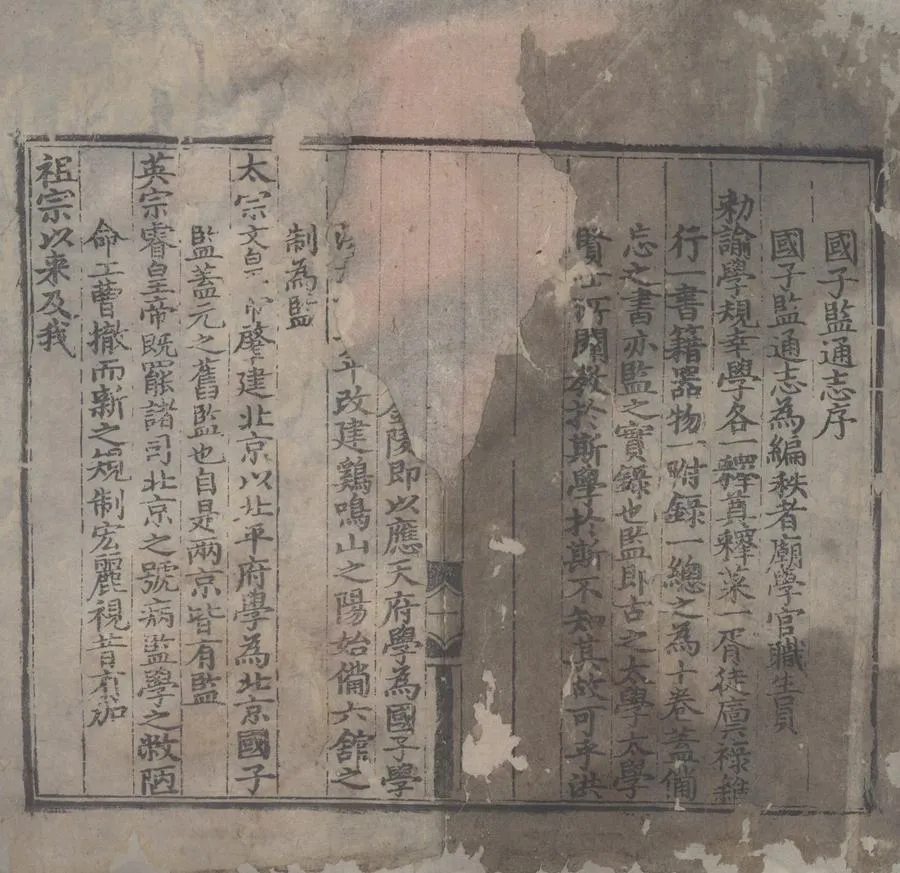 國子監通志序
國子監通志為編秩者廟學官職生員
勑諭學規幸學各一釋奠釋菜一胥徒廩祿雜
行一書籍器物一附錄一總之為十卷蓋備
忘之書亦監之實錄也監即古之太學太學
賢士所關教於斯學於斯不知其故可乎洪
金陵即以應天府學為國子學
年改建鷄鳴山之陽始備六舘之
制為監
太宗文皇帝肇建北京以北平府學為北京國子
監蓋元之舊監也自是兩京皆有監
英宗睿皇帝既罷諸司北京之號病監學之敝陋
命工曹撤而新之規制宏麗視昔有加
祖宗以来及我